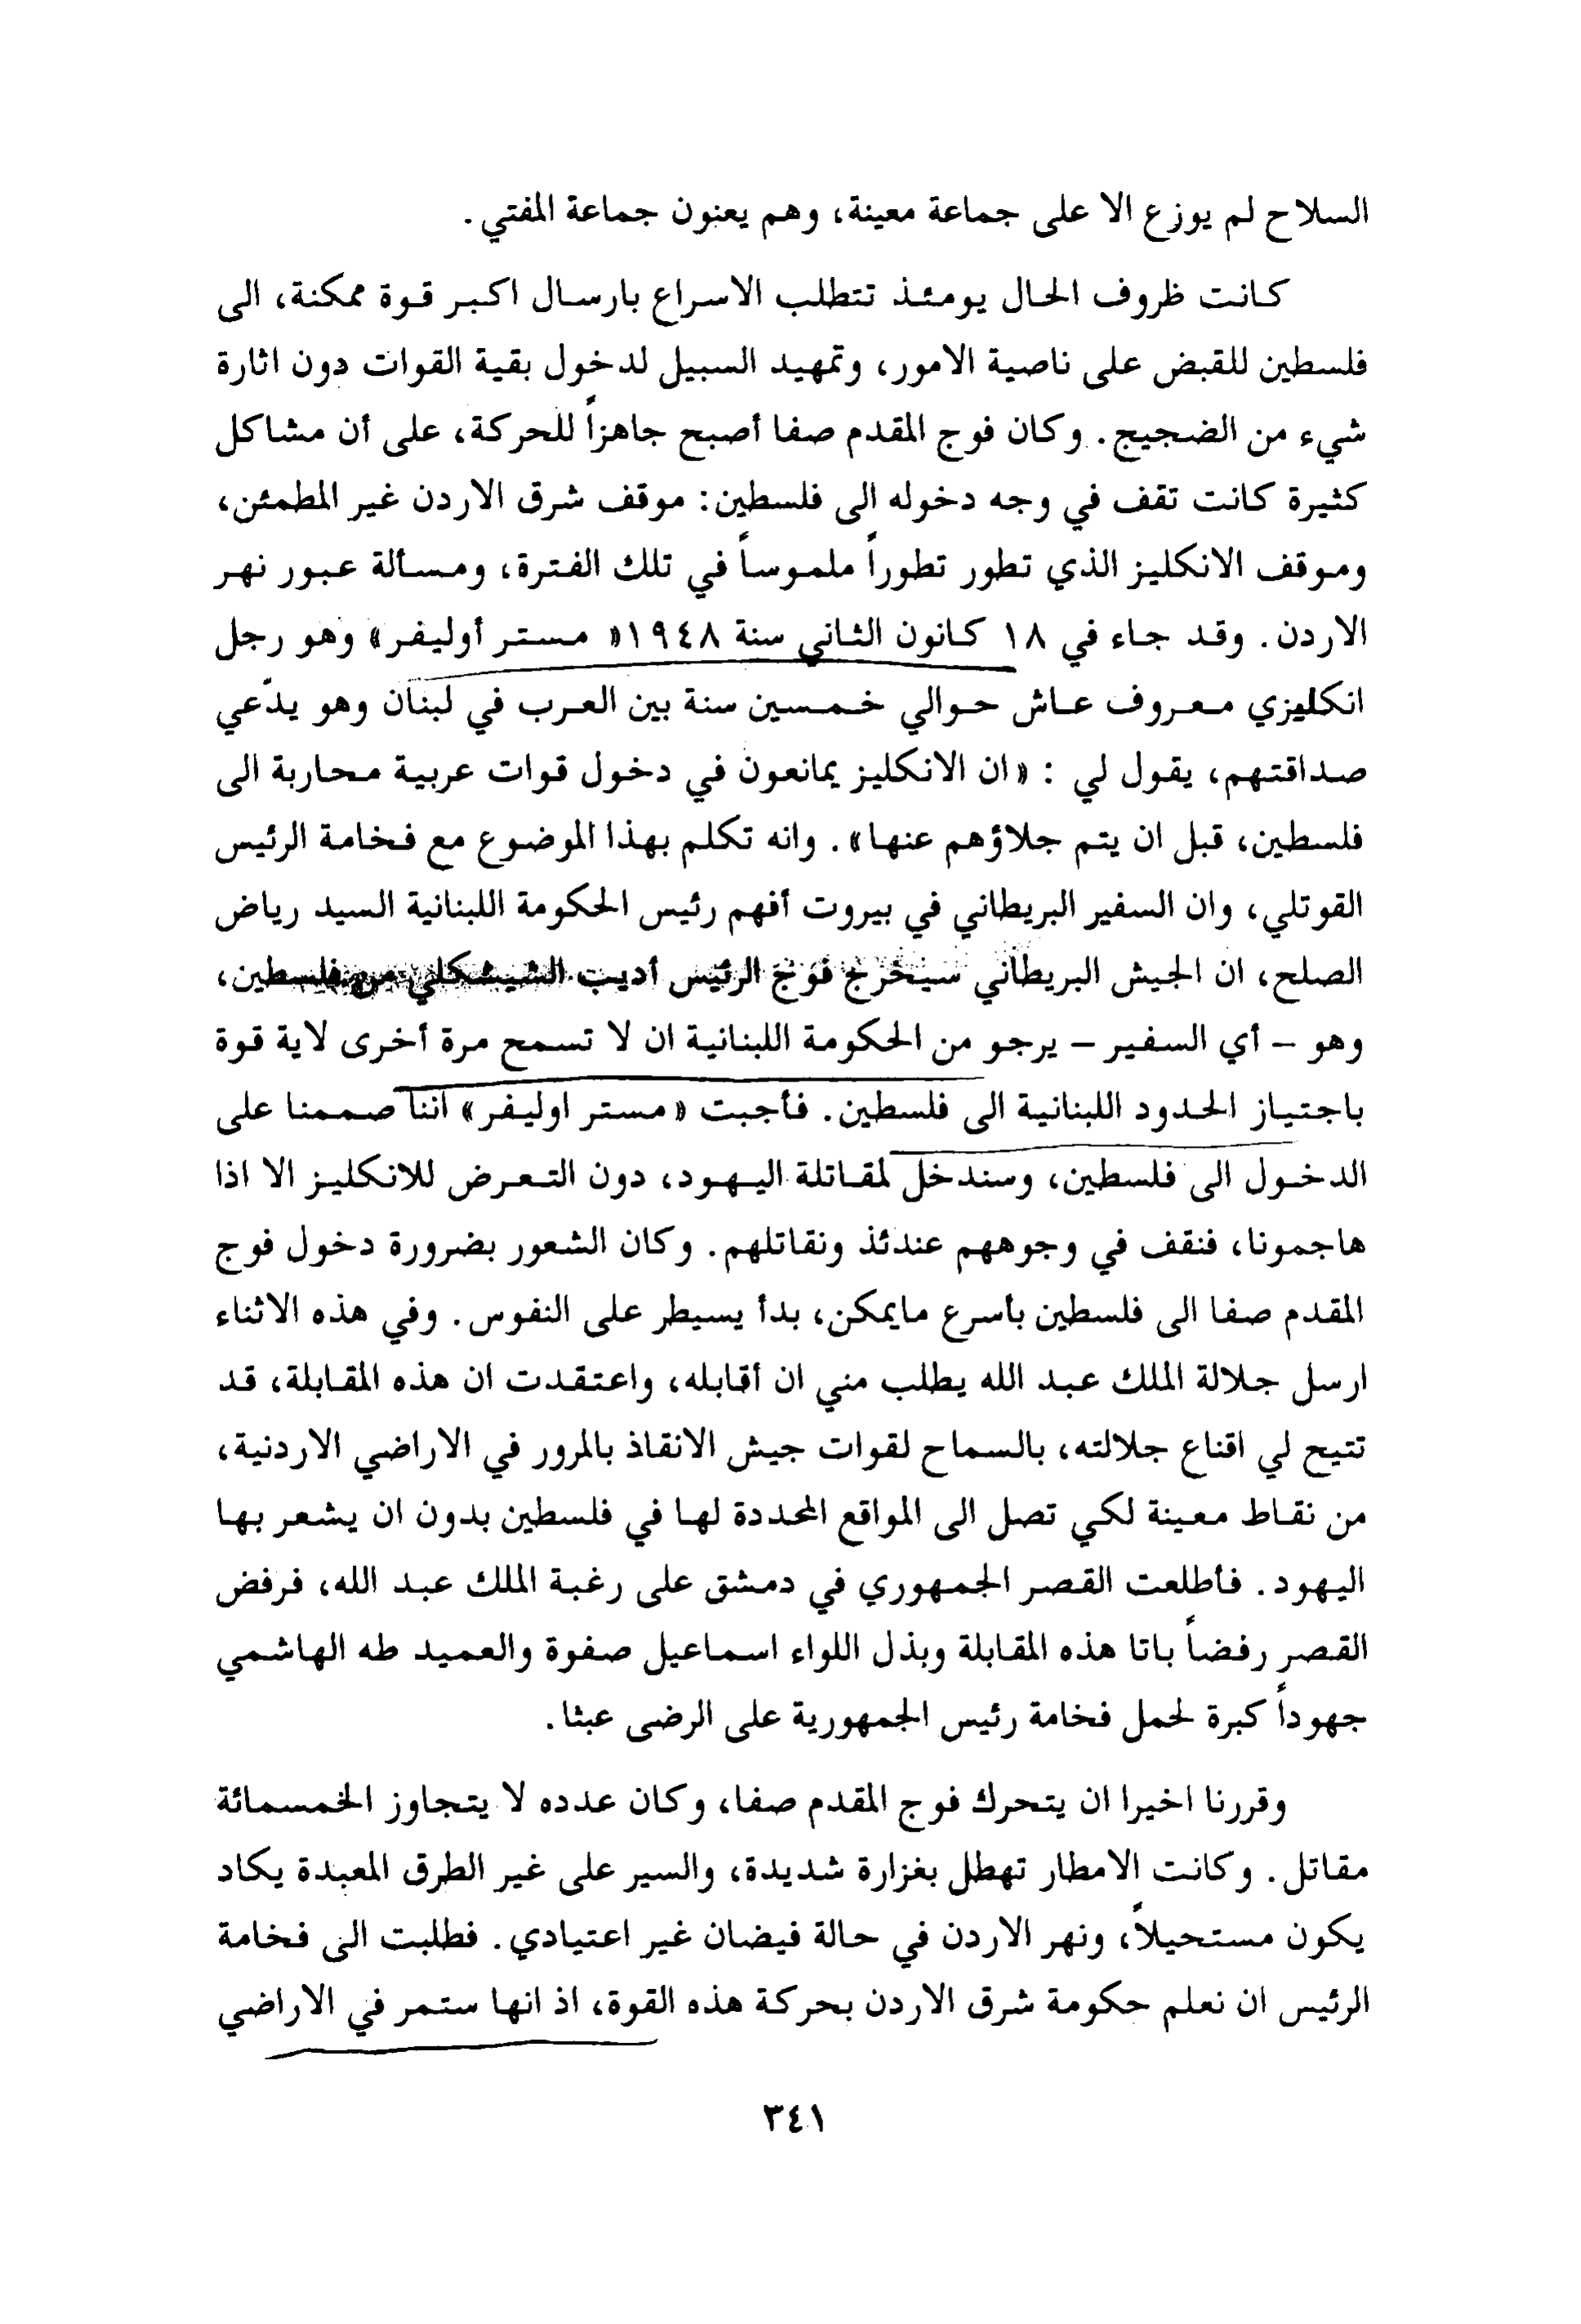 السلاح لم يوزع الا على جماعة معينة، وهم يعنون جماعة المفتي.
كانت ظروف الحال يومئذ تتطلب الاسراع بارسال اكبر قوة ممكنة، الى
فلسطين للقبض على ناصية الامور، وتمهيد السبيل لدخول بقية القوات دون اثارة
شيء من الضجيج. وكان فوج المقدم صفا أصبح جاهزاً للحركة، على أن مشاكل
كثيرة كانت تقف في وجه دخوله الى فلسطين: موقف شرق الاردن غير المطمئن،
وموقف الانكليز الذي تطور تطوراً ملموساً في تلك الفترة، ومسألة عبور نهر
الاردن. وقد جاء في ١٨ كانون الثاني سنة ١٩٤٨« مستر أوليفر» وهو رجل
انكليزي معروف عاش حوالي خمسين سنة بين العرب في لبنان وهو يدّعي
صداقتهم، يقول لي : «ان الانكليز يمانعون في دخول قوات عربية محاربة الى
فلسطين، قبل ان يتم جلاؤهم عنها». وانه تكلم بهذا الموضوع مع فخامة الرئيس
القوتلي، وان السفير البريطاني في بيروت أفهم رئيس الحكومة اللبنانية السيد رياض
الصلح، ان الجيش البريطاني سيخرج فوج الرئيس أديب الشيشكلي من فلسطين،
وهو - أي السفير - يرجو من الحكومة اللبنانية ان لا تسمح مرة أخرى لاية قوة
باجتياز الحدود اللبنانية الى فلسطين. فأجبت «مستر اوليفر» اننا صممنا على
الدخول الى فلسطين، وسندخل لمقاتلة اليهود، دون التعرض للانكليز الا اذا
هاجمونا، فنقف في وجوههم عندئذ ونقاتلهم. وكان الشعور بضرورة دخول فوج
المقدم صفا الى فلسطين بأسرع مايمكن، بدأ يسيطر على النفوس. وفي هذه الاثناء
ارسل جلالة الملك عبد الله يطلب مني ان أقابله، واعتقدت ان هذه المقابلة، قد
تتيح لي اقناع جلالته، بالسماح لقوات جيش الانقاذ بالمرور في الاراضي الاردنية،
من نقاط معينة لكي تصل الى المواقع المحددة لها في فلسطين بدون ان يشعر بها
اليهود. فأطلعت القصر الجمهوري في دمشق على رغبة الملك عبد الله، فرفض
القصر رفضاً باتا هذه المقابلة وبذل اللواء اسماعيل صفوة والعميد طه الهاشمي
جهوداً كبرة لحمل فخامة رئيس الجمهورية على الرضى عبثا.
وقررنا اخيرا ان يتحرك فوج المقدم صفا، وكان عدده لا يتجاوز الخمسمائة
مقاتل. وكانت الامطار تهطل بغزارة شديدة، والسير على غير الطرق المعبدة يكاد
يكون مستحيلاً، ونهر الاردن في حالة فيضان غير اعتيادي. فطلبت الى فخامة
الرئيس ان نعلم حكومة شرق الاردن بحركة هذه القوة، اذ انها ستمر في الاراضي
٣٤١